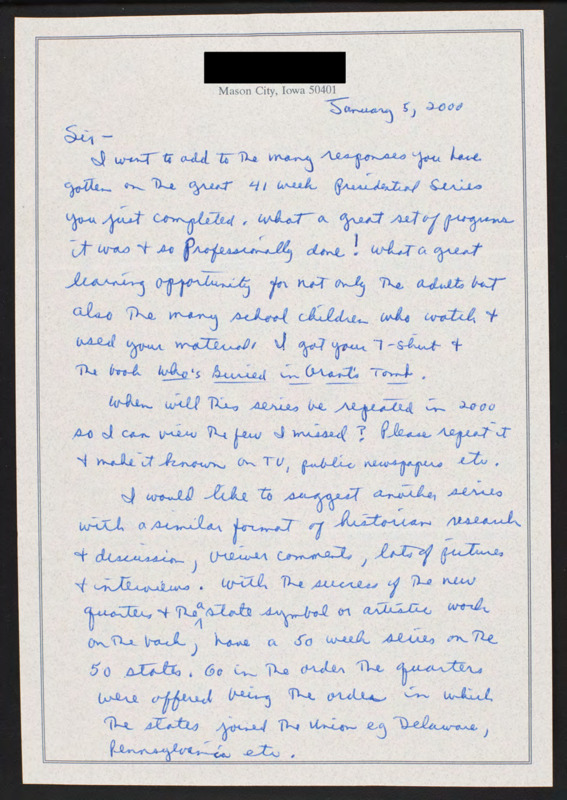 Mason City, Iowa 50401
January 5, 2000
Sir -
I want to add to the many responses you have
gotten on the great 41 week Presidential Series
you just completed. What a great set of programs
it was + so Professionally done! What a great
learning opportunity for not only the adults but
also the many school children who watch +
used your materials. I got your T-shirt +
the book Who's Buried in Grant's Tomb.
When will this series be repeated in 2000
so I can view the few I missed? Please repeat it
+ make it known on TV, public newspapers etc.
I would like to suggest another series
with a similar format of historian research
+ discussion, viewer comments, lots of pictures
+ interviews. With the success of the new
quarters + the a state symbol or artistic work
on the back, have a 50 week series on the
50 states. Go in the order the quarters
were offered being the order in which
the states joined the Union eg Delaware,
Pennsylvania etc.